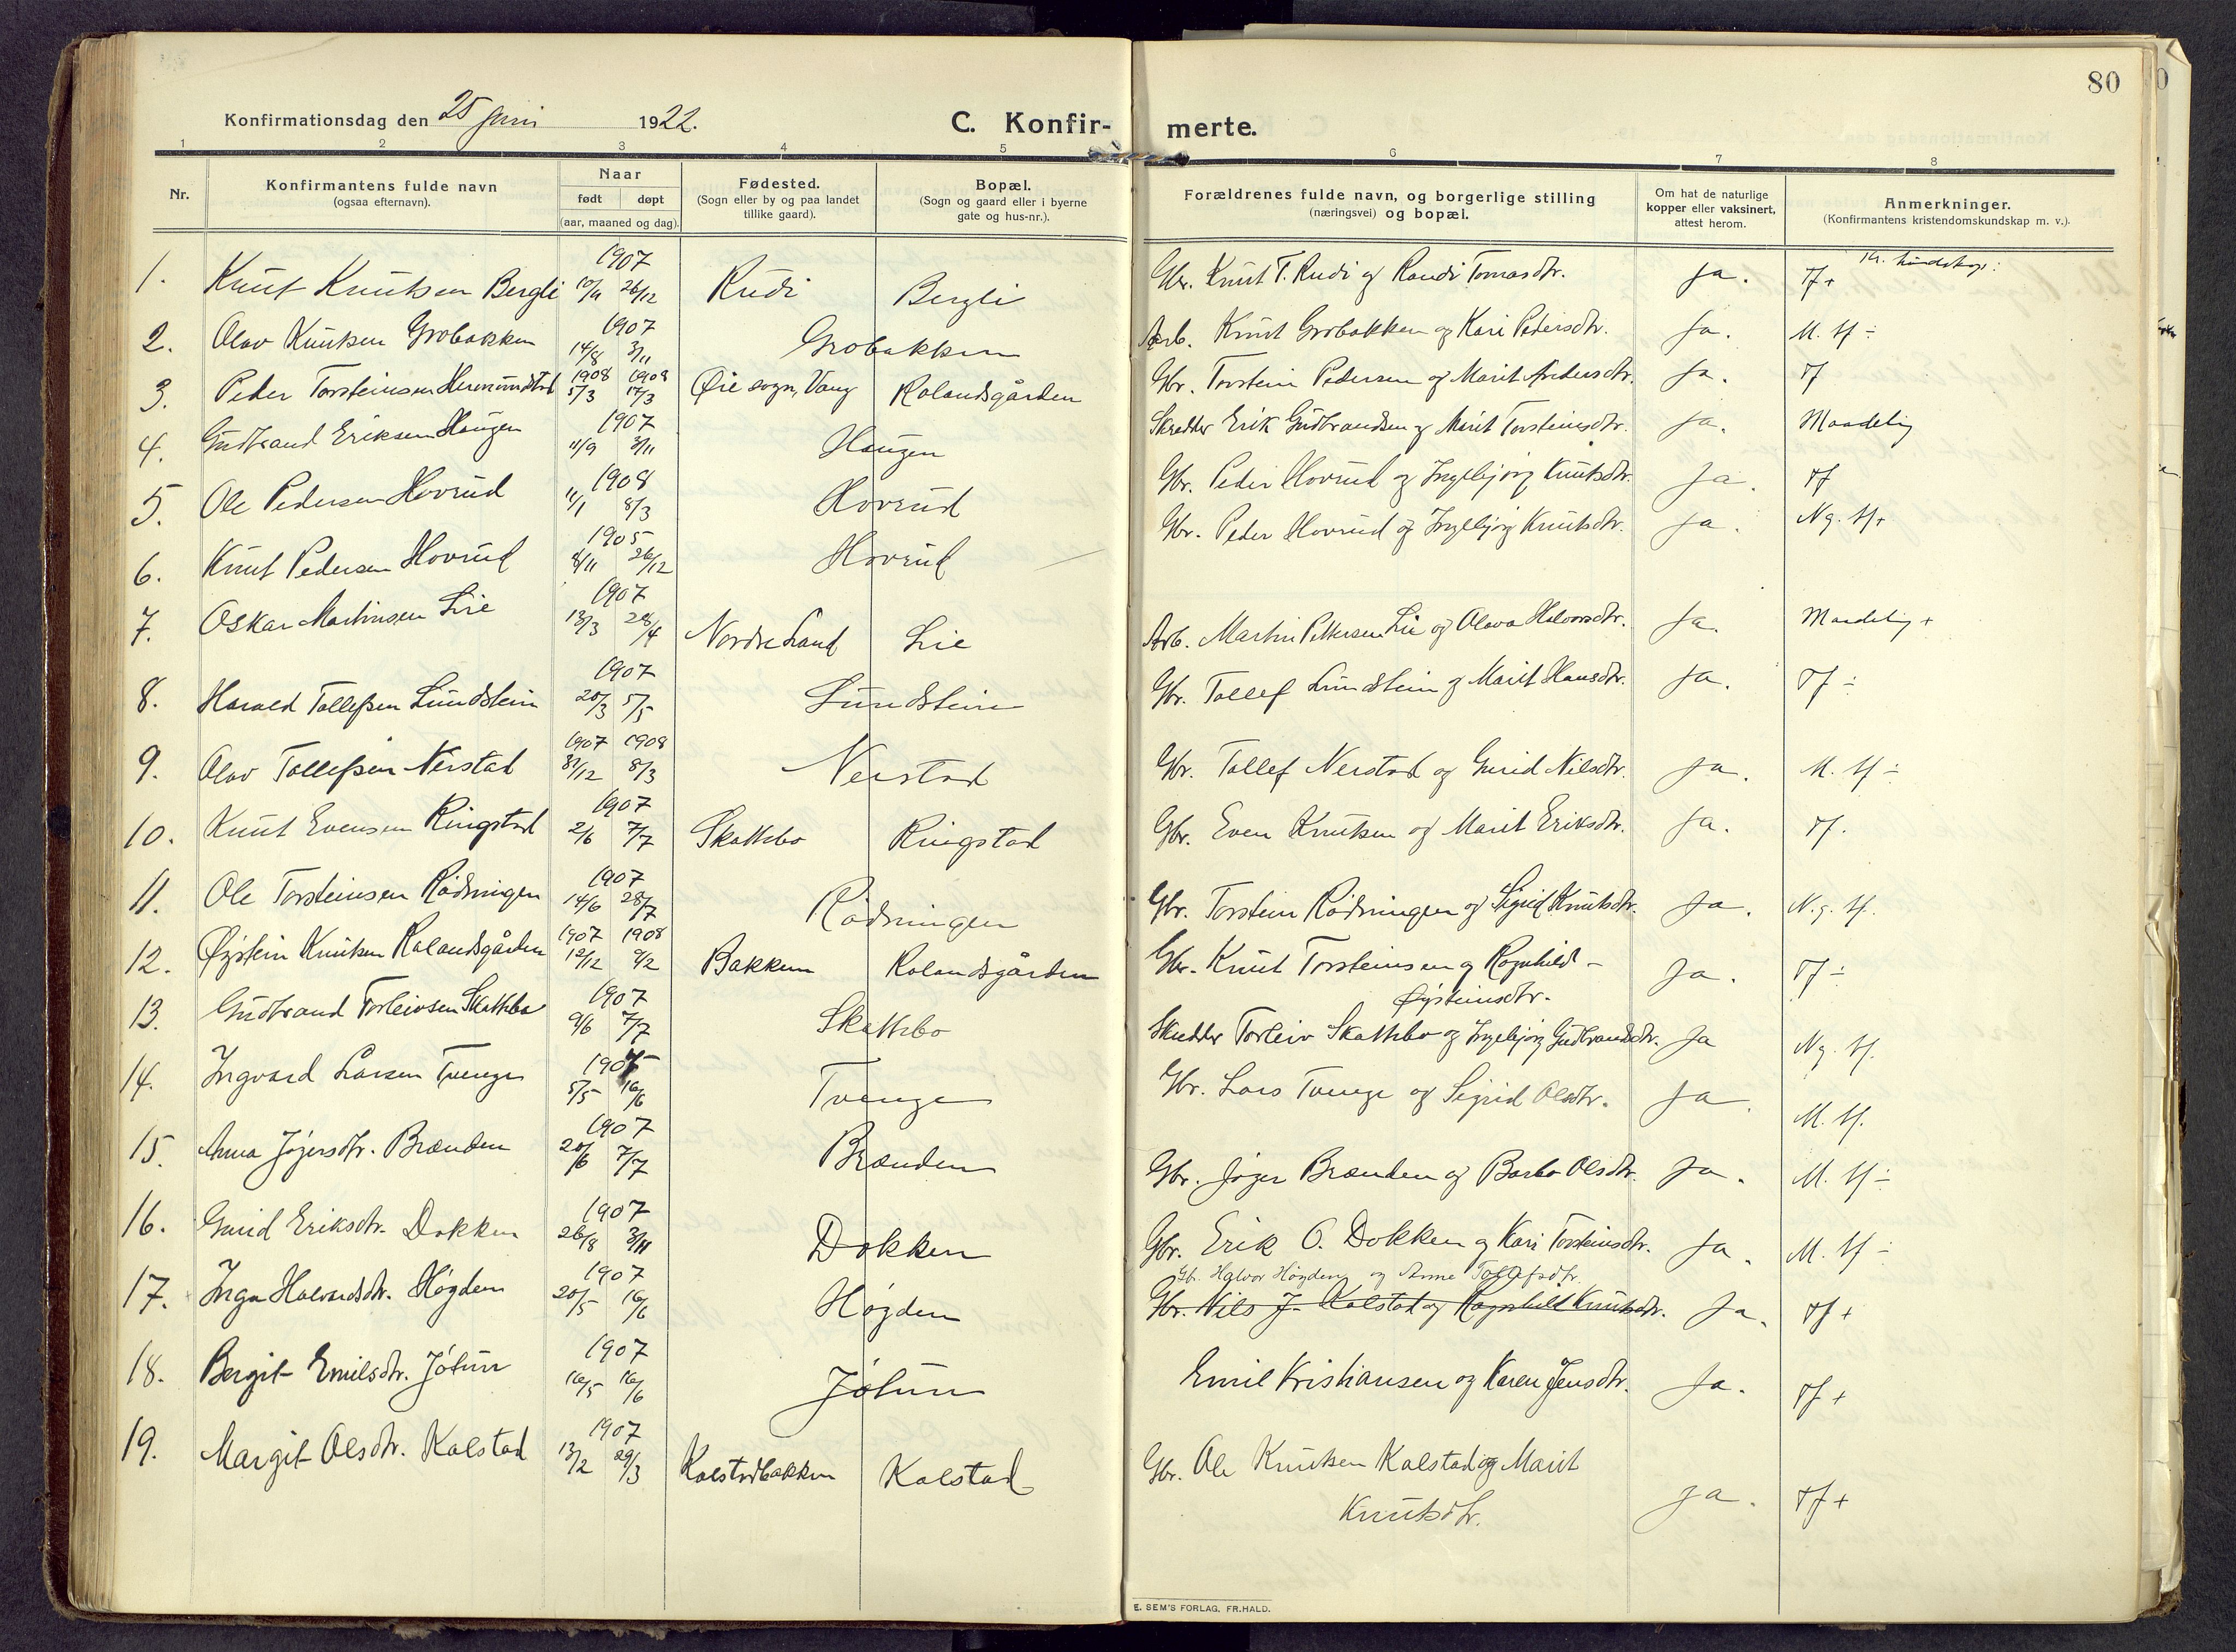 80
Konfirmationsdag den 25 juni 1922.
C. Konfir-merte.
1 2 3 4 5 6 7 8
Nr.
Konfirmantens fulde navn
(ogsaa efternavn).
Naar
født døpt
(aar, maaned og dag).
Fødested.
(Sogn eller by og paa landet
tillike gaard).
Bopæl.
(Sogn og gaard eller i byerne
gate og hus-nr.).
Forældrenes fulde navn, og borgerlige stilling
(næringsvei) og bopæl.
Om hat de naturlige
kopper eller vaksinert,
attest herom.
Anmerkninger.
(Konfirmantens kristendomskundskap m. v.).
Kr. kundskap:
1907
1. Knut Knutsen Bergli 10/11 26/12 Rudi Bergli Gbr. Knut T. Rudi og Randi Tomasdtr. Ja. Tf +
1907
2. Olav Knutsen Grobakken 14/8 3/11 Grobakken Arb. Knut Grobakken og Kari Pedersdtr. Ja. M. tf ÷
1908 1908
3. Peder Torsteinsen Hermundstad 5/3 17/3 Øie sogn, Vang Rolandsgården Gbr. Torstein Pedersen og Marit Andersdtr. Ja. Tf
1907
4. Gudbrand Eriksen Haugen 11/9 3/11 Haugen Skrædder Erik Gudbrandsen og Marit Torsteinsdtr. Ja. Maadelig
1908
5. Ole Pedersen Hovrud 11/1 8/3 Hovrud Gbr. Peder Hovrud og Ingebjørg Knutsdtr. Ja. Tf
1905
6. Knut Pedersen Hovrud 8/11 26/12 Hovrud Gbr. Peder Hovrud og Ingebjørg Knutsdtr. Ja. Ng. tf +
1907
7. Oskar Martinsen Lie 13/3 28/4 Nordre Land Lie Arb. Martin Pettersen Lie og Olava Halvorsdtr. Ja. Maadelig +
1907
8. Harald Tollefsen Lundstein 20/3 5/5 Lundstein Gbr. Tollef Lundstein og Marit Hansdtr. Ja. Tf ÷
1907 1908
9. Olav Tollefsen Nerstad 31/12 8/3 Nerstad Gbr. Tollef Nerstad og Gurid Nilsdtr. Ja. M. tf ÷
1907
10. Knut Evensen Ringstad 2/6 7/7 Skattebo Ringstad Gbr. Even Knutsen og Marit Eriksdtr. Ja. Tf.
1907
11. Ole Torsteinsen Rødningen 14/6 28/7 Rødningen Gbr. Torstein Rødningen og Sigrid Knutsdtr. Ja. N.g. tf.
1907 1908
12. Øystein Knutsen Rolandsgården 12/12 9/2 Bakken Rolandsgården Gbr. Knut Torsteinsen og Ragnhild -
Øysteinsdtr. Ja. Tf ÷
1907
13. Gudbrand Torleivsen Skattebo 9/6 7/7 Skattebo Skrædder Torleiv Skattebo og Ingebjørg Gudbrandsdtr. Ja Ng. tf.
14. Ingvard Larsen Tvenge 5/5 16/6 Tvenge Gbr. Lars Tvenge og Sigrid Olsdtr. Ja. M. tf.
1907
15. Anna Jøgersdtr. Brænden 20/6 7/7 Brænden Gbr. Jøger Brænden og Barbo Olsdtr. Ja. M. tf ÷
1907
16. Gurid Eriksdtr. Dokken 26/8 3/11 Dokken Gbr. Erik O. Dokken og Kari Torsteinsdtr. Ja. M. tf ÷
1907
Gbr. Halvor Høgden og Anne Tollefsdtr.
17. Inga Halvardsdtr. Høgden 20/5 16/6 Høgden Gbr. Nils J. Kolstad og Ragnhild Knutsdtr. Ja. Tf +
1907
18. Bergit Emilsdtr. Jøtun 16/5 16/6 Jøtun Emil Kristiansen og Karen Jensdtr. Ja. Tf +
1907
19. Margit Olsdtr. Kolstad 13/2 29/3 Kolstadbakken Kolstad Gbr. Ole Knutsen Kolstad og Marit
Knutsdtr. Ja. Tf +
E. SEM'S FORLAG. FR.HALD.